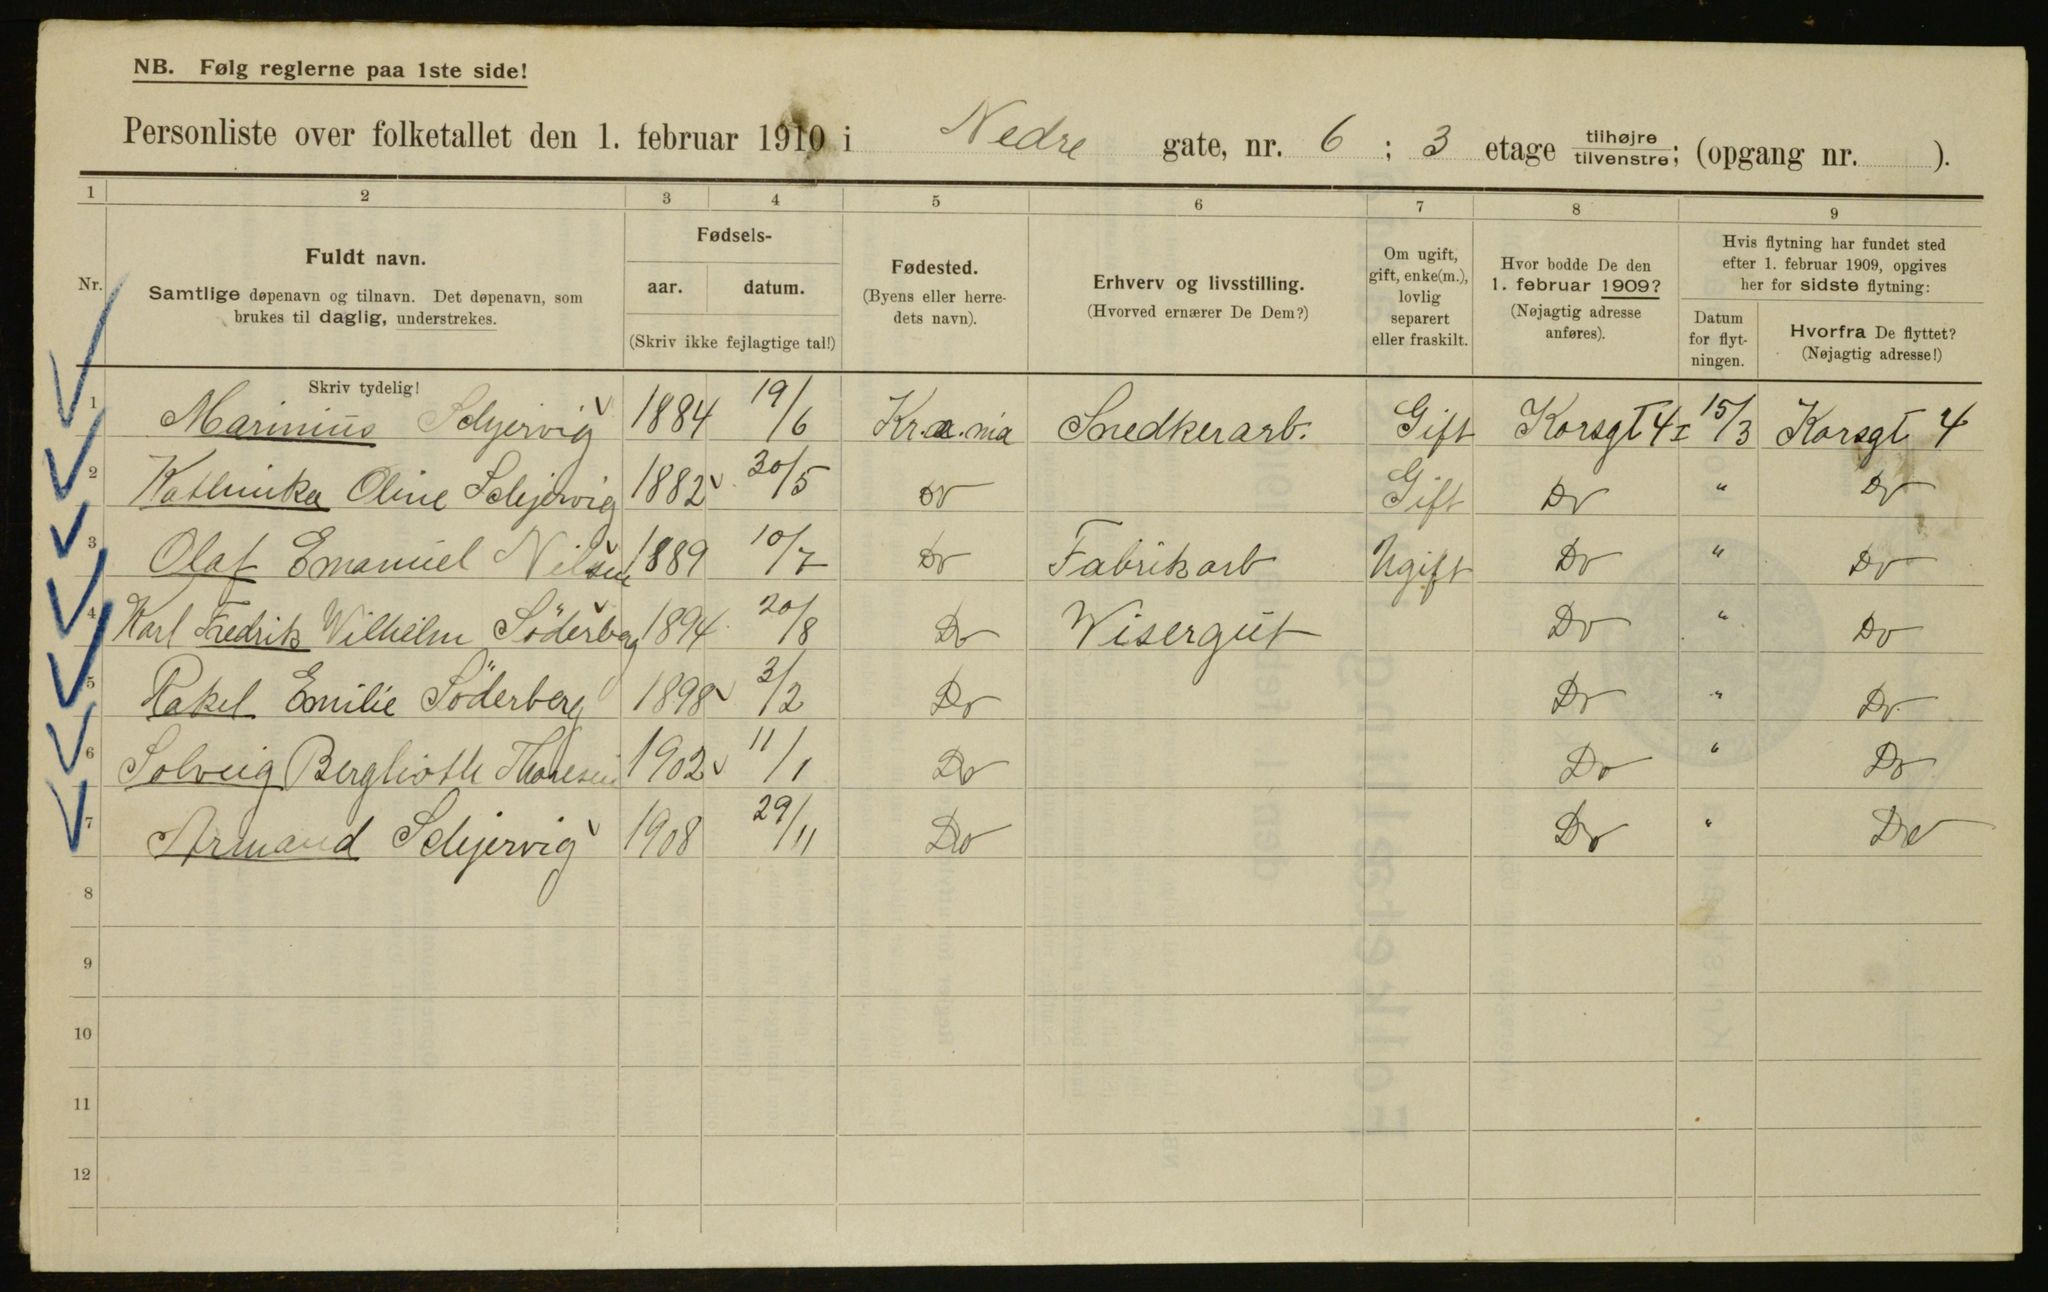 NB. Følg reglerne paa 1ste side!
Personliste over folketallet den 1. februar 1910 i Nedre gate, nr. 6 ; 3 etage tilhøjre/tilvenstre; (opgang nr. ).
1 2 3 4 5 6 7 8 9
Nr.
Fuldt navn.
Samtlige døpenavn og tilnavn. Det døpenavn, som
brukes til daglig, understrekes.
Skriv tydelig!
Fødsels-
aar. datum.
(Skriv ikke fejlagtige tal!)
Fødested.
(Byens eller herre-
dets navn).
Erhverv og livsstilling.
(Hvorved ernærer De Dem?)
Om ugift,
gift, enke(m.),
lovlig
separert
eller fraskilt.
Hvor bodde De den
1. februar 1909?
(Nøjagtig adresse
anføres).
Hvis flytning har fundet sted
efter 1. februar 1909, opgives
her for sidste flytning:
Datum
for flyt-
ningen.
Hvorfra De flyttet?
(Nøjagtig adresse!)
1 Marinius Schjervig 1884 19/6 Kr.a.nia Snedkerarb. Gift Korsgt 4 I 15/3 Korsgt 4
2 Kathinka Oline Schjervig 1882 30/5 Do Gift Do " Do
3 Olaf Emanuel Nilsen 1889 10/7 Do Fabrikarb Ugift Do " Do
4 Karl Fredrik Wilhelm Söderberg 1894 20/8 Do Wisergut Do " Do
5 Rakel Emilie Söderberg 1898 3/2 Do Do " Do
6 Solveig Berglioth Thoresen 1902 11/1 Do Do " Do
7 Armand Schjervig 1908 29/11 Do Do " Do
8
9
10
11
12